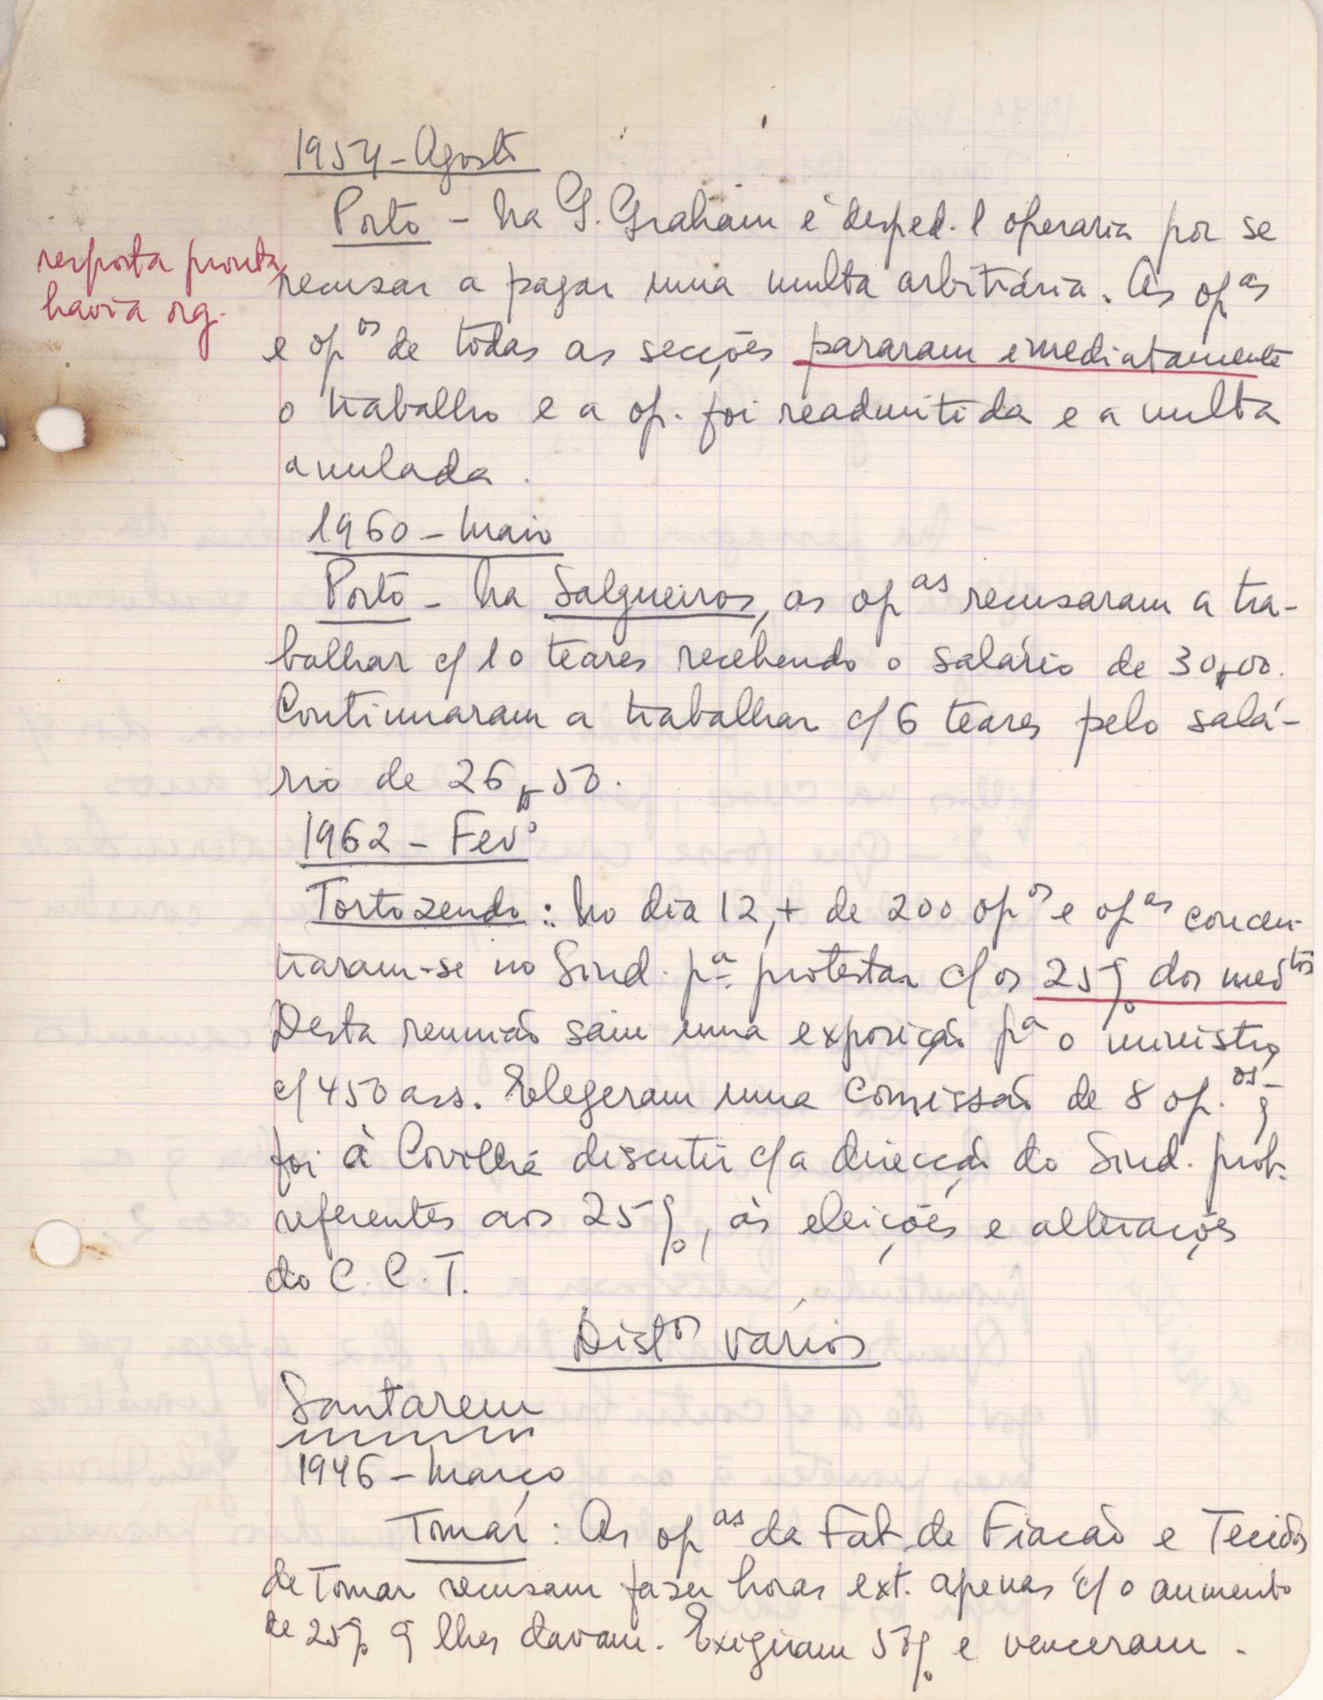 1954 - Agosto
Porto - Na G. Graham é desped. 1 operaria por se
resposta pronta
havia org.
recusar a pagar uma multa arbitrária. As opas
e opos de todas as secções pararam imediatamente
o trabalho e a op. foi readmitida e a multa
anulada.
1960 - Maio
Porto - Na Salgueiros, as opas recusaram a tra-
balhar c/ 10 teares recebendo o salário de 30$00.
Continuaram a trabalhar c/ 6 teares pelo salá-
rio de 26$50.
1962 - Fevº
Tortozendo: No dia 12, + de 200 opos e opas concen-
traram-se no Sind. pª protestar c/ os 25% dos medtos
Desta reunião saiu uma exposição pª o ministro
c/ 450 ass. Elegeram uma comissão de 8 op.os q
foi à Covilhã discutir c/ a direcção do Sind. prob.
referentes aos 25%, às eleições e alterações
do C.C.T.
Distos vários
Santarem
1946 - Março
Tomar: As opas da Fab. de Fiacão e Tecidos
de Tomar recusam fazer horas ext. apenas c/ o aumento
de 25% q lhes davam. Exigiram 50% e venceram.